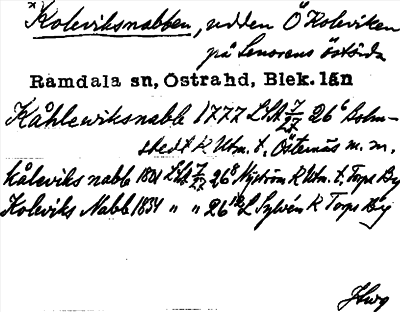 *Koleviksnabben, udden Ö Koleviken
på Senorens östsida
Ramdala sn, Östrahd, Blek. län
Kåhlewiksnabb 1777 LSA 7/27 26⁶ Bohn-
stedt K Utm. t. Östernäs m. m.
Kåleviks nabb 1801 LSA 7/27 26⁸ Nyström K Utm. t. Torps By
Koleviks Nabb 1834 " " 26¹² L Sylvén K Torps By